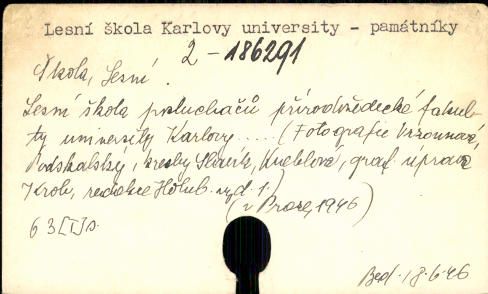 Lesní škola Karlovy university - památníky
2-186291
Škola, Lesní.
Lesní škola posluchačů přírodovědecké fakul-
ty university Karlovy .... (Fotografie Vrzounová,
Podskalský, kresby Slavík, Kneblová, graf. úprava
Krob, redakce Holub. vyd. 1.)
(v Praze, 1946)
63 [I] s.
Bed. 18.6.46